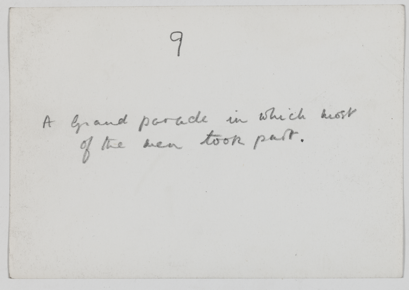 9
A Grand parade in which most
of the men took part.